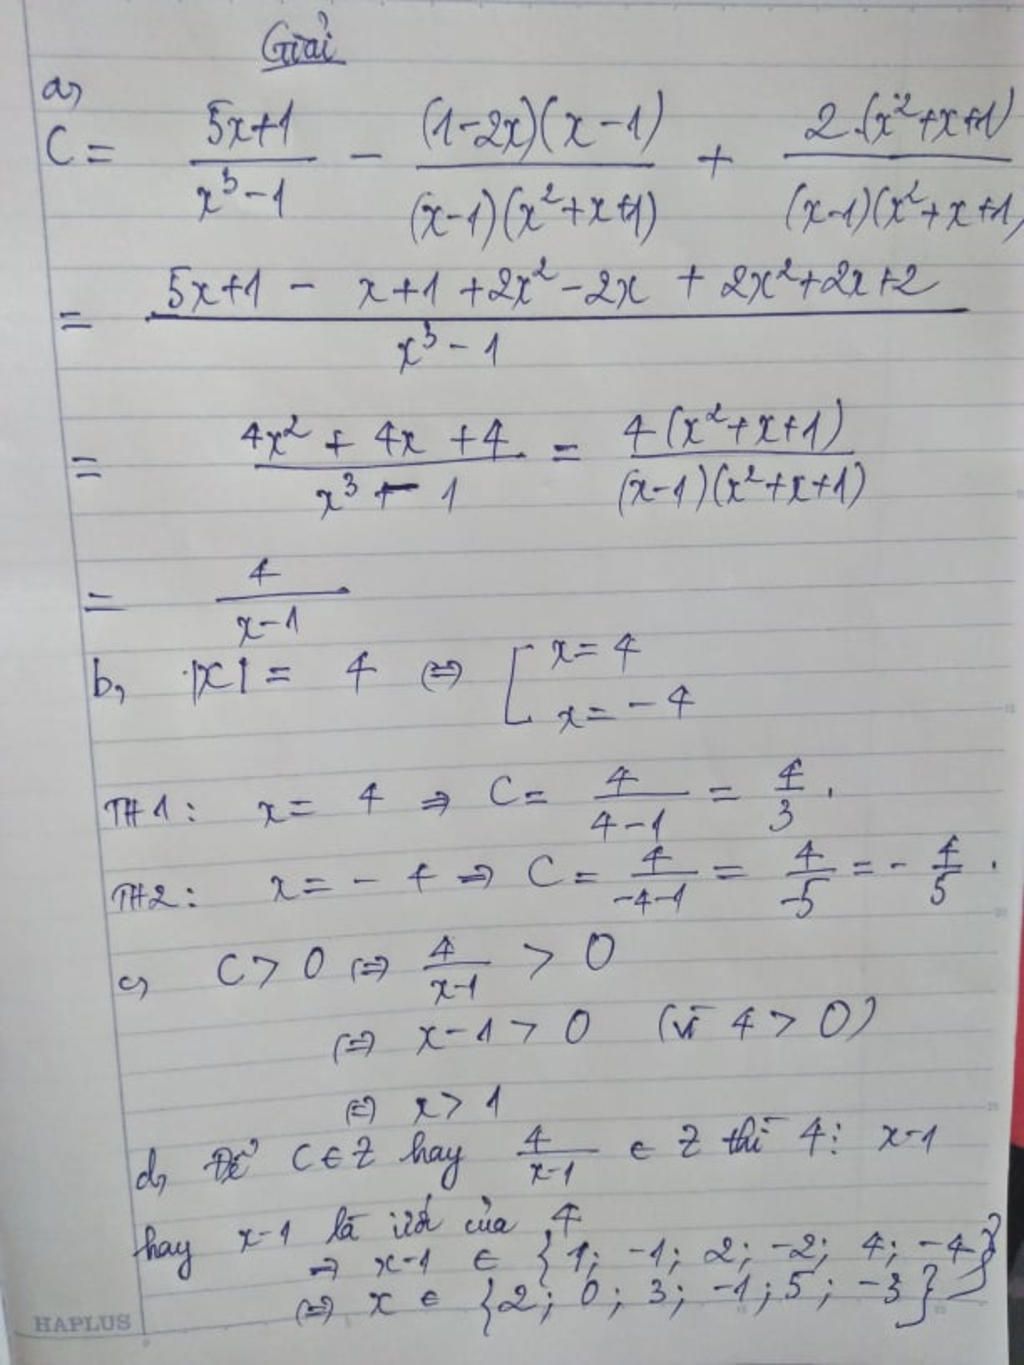 Giải
a,
C = \frac{5x+1}{x^3-1} - \frac{(1-2x)(x-1)}{(x-1)(x^2+x+1)} + \frac{2.(x^2+x+1)}{(x-1)(x^2+x+1)}
= \frac{5x+1 - x+1+2x^2-2x + 2x^2+2x+2}{x^3-1}
= \frac{4x^2+4x+4}{x^3-1} = \frac{4(x^2+x+1)}{(x-1)(x^2+x+1)}
= \frac{4}{x-1}
b, |x| = 4 ⇔ [ x = 4
x = -4
TH1: x = 4 ⇒ C = \frac{4}{4-1} = \frac{4}{3}.
TH2: x = -4 ⇒ C = \frac{4}{-4-1} = \frac{4}{-5} = -\frac{4}{5}.
c, C > 0 ⇔ \frac{4}{x-1} > 0
⇔ x-1 > 0 (vì 4 > 0)
⇔ x > 1
d, Để C ∈ Z hay \frac{4}{x-1} ∈ Z thì 4 ⋮ x-1
hay x-1 là ước của 4
⇒ x-1 ∈ {1; -1; 2; -2; 4; -4}
⇔ x ∈ {2; 0; 3; -1; 5; -3}
HAPLUS